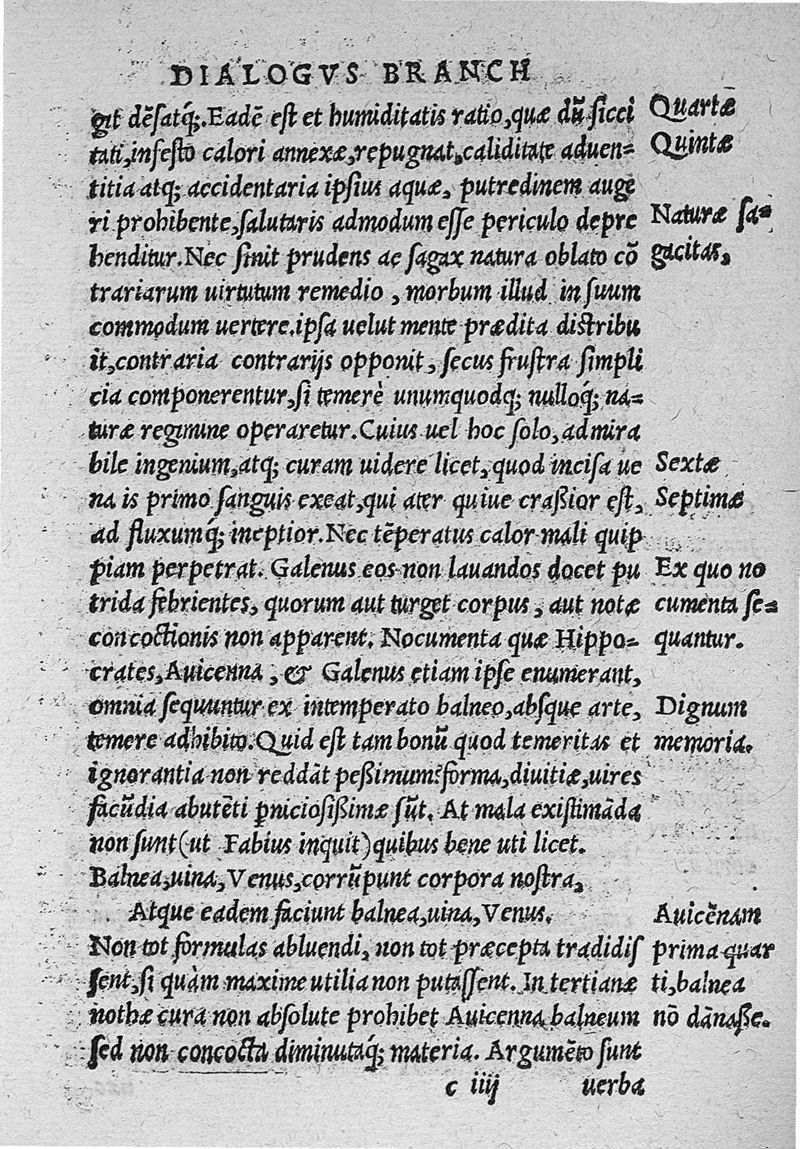 DIALOGVS BRANCH
git dẽsatq́;. Eadẽ est et humiditatis ratio, quæ dũ sicci
tati, infesto calori annexæ, repugnat, caliditate aduen-
titia atq; accidentaria ipsius aquæ, putredinem auge
ri prohibente, salutaris admodum esse periculo depre
henditur. Nec sinit prudens ac sagax natura oblato cõ
trariarum uirtutum remedio, morbum illud in suum
commodum uertere. ipsa uelut mente prædita distribu
it, contraria contrarijs opponit, secus frustra simpli
cia componerentur, si temerè unumquodq; nulloq́; na-
turæ regimine operaretur. Cuius uel hoc solo, admira
bile ingenium, atq; curam uidere licet, quod incisa ue
na is primo sanguis exeat, qui ater quiue craßior est,
ad fluxumq́; ineptior. Nec tẽperatus calor mali quip
piam perpetrat. Galenus eos non lauandos docet pu
trida febrientes, quorum aut turget corpus, aut notæ
concoctionis non apparent. Nocumenta quæ Hippo-
crates, Auicenna, & Galenus etiam ipse enumerant,
omnia sequuntur ex intemperato balneo, absque arte,
temere adhibito. Quid est tam bonũ quod temeritas et
ignorantia non reddãt peßimum: forma, diuitiæ, uires
facũdia abutẽti ꝑniciosißimæ sũt. At mala existimãda
non sunt (ut Fabius inquit) quibus bene uti licet.
Balnea, uina, Venus, corrũpunt corpora nostra,
Atque eadem faciunt balnea, uina, Venus.
Non tot formulas abluendi, non tot præcepta tradidis
sent, si quàm maxime utilia non putassent. In tertianæ
nothæ cura non absolute prohibet Auicenna balneum
sed non concocta diminutaq́; materia. Argumẽto sunt
c iiij uerba
Quartæ
Quintæ
Naturæ sa-
gacitas,
Sextæ
Septimæ
Ex quo no
cumenta se-
quantur.
Dignum
memoria.
Auicẽnam
prima quar
ti, balnea
nõ dãnaße.